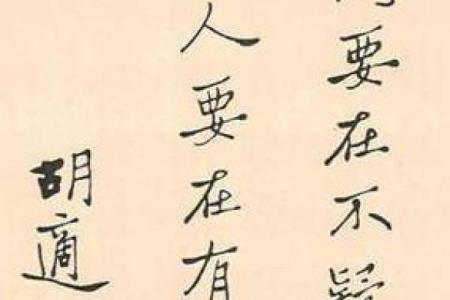 要在不疑
人要在有
胡適